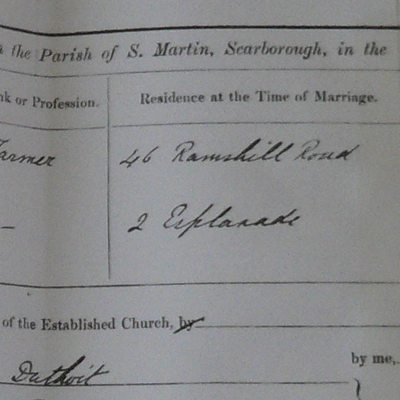 the Parish of S. Martin, Scarborough, in the
or Profession. Residence at the Time of Marriage.
Farmer 46 Ramshill Road
— 2 Esplanade
of the Established Church, by
by me,
Duthoit